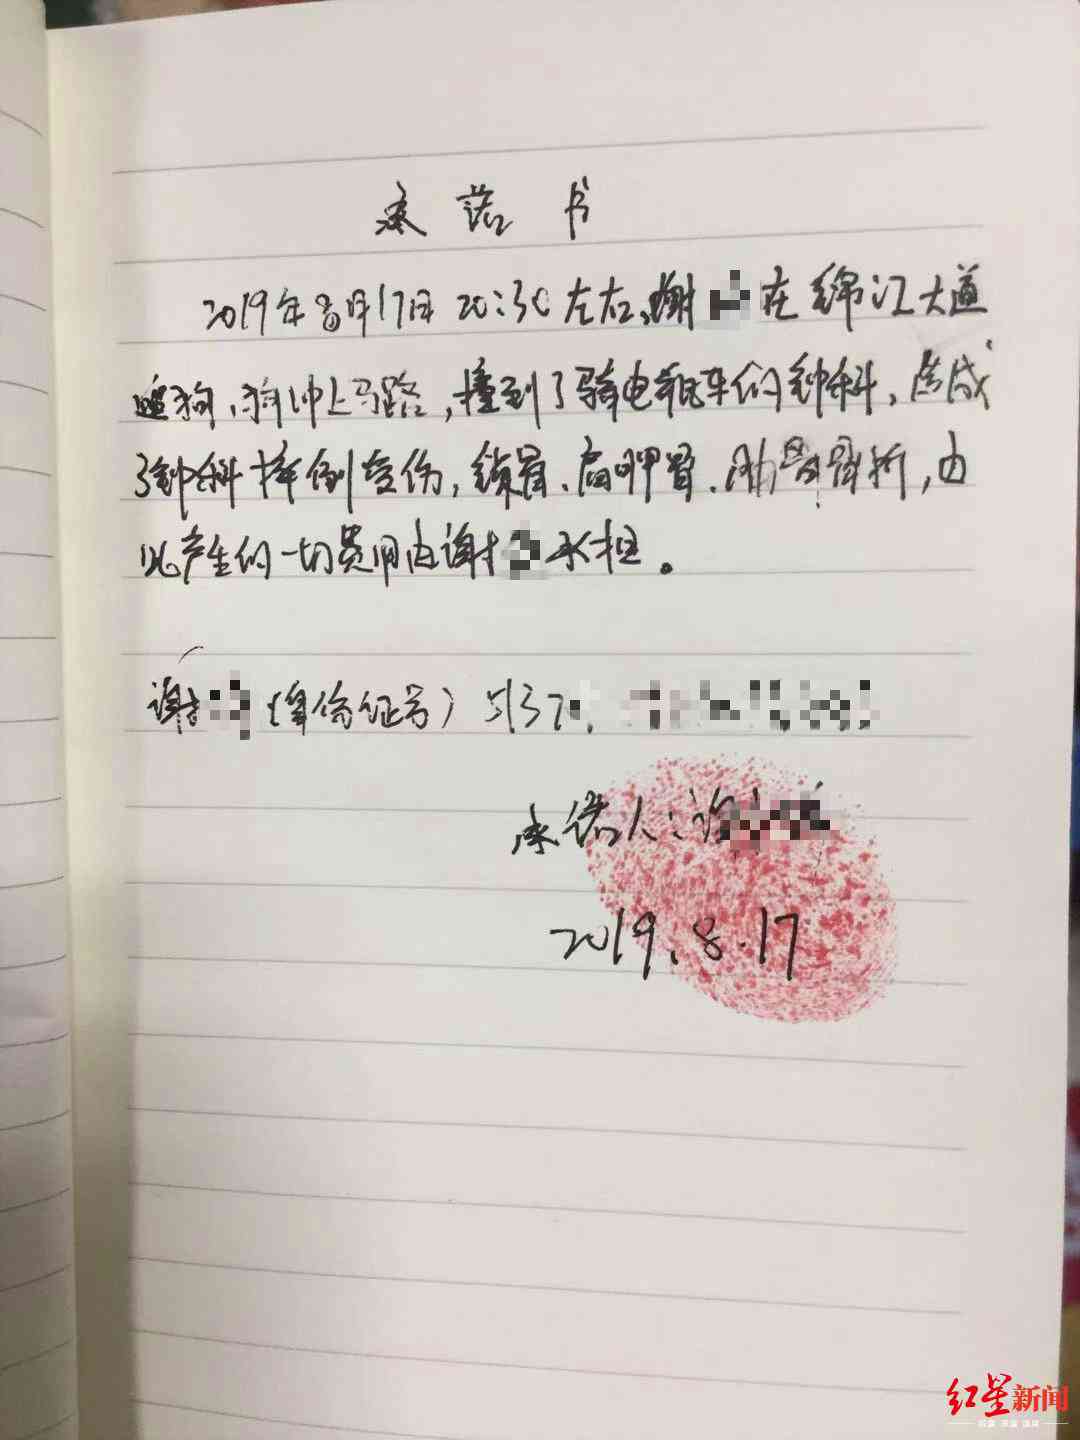 承诺书
2019年8月17日20:30左右,谢在绵江大道
遛狗,狗冲上马路,撞到了骑电瓶车的钟科,造成
了钟科摔倒受伤,锁骨、肩胛骨、肋骨骨折,由
此产生的一切费用由谢承担。
谢(身份证号)5137
承诺人:谢
2019.8.17
红星新闻